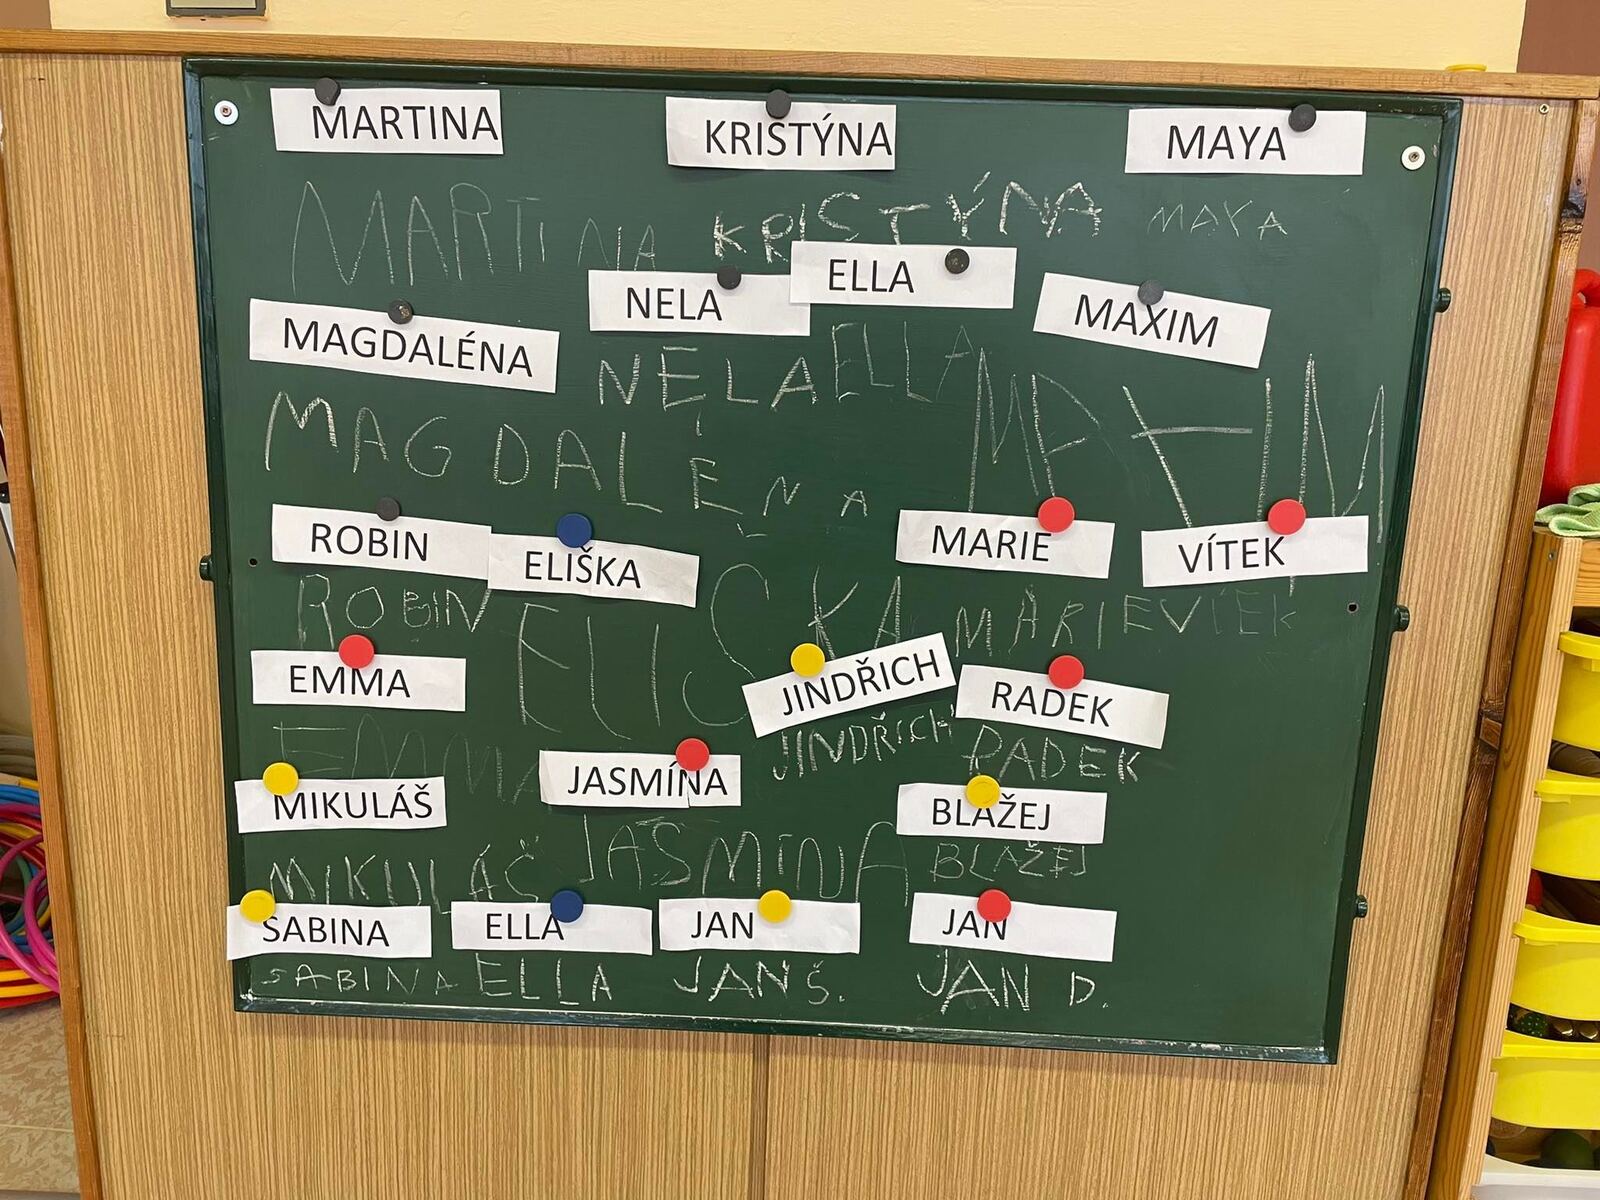 MARTINA KRISTÝNA MAYA
MARTINA KRISTÝNA MAYA
NELA ELLA MAXIM
MAGDALÉNA
NELA ELLA MAXIM
MAGDALÉNA
ROBIN ELIŠKA MARIE VÍTEK
ROBIN ELIŠKA MARIE VÍTEK
EMMA JINDŘICH RADEK
EMMA JINDŘICH RADEK
MIKULÁŠ JASMÍNA BLAŽEJ
MIKULÁŠ JASMÍNA BLAŽEJ
SABINA ELLA JAN JAN
SABINA ELLA JAN Š. JAN D.